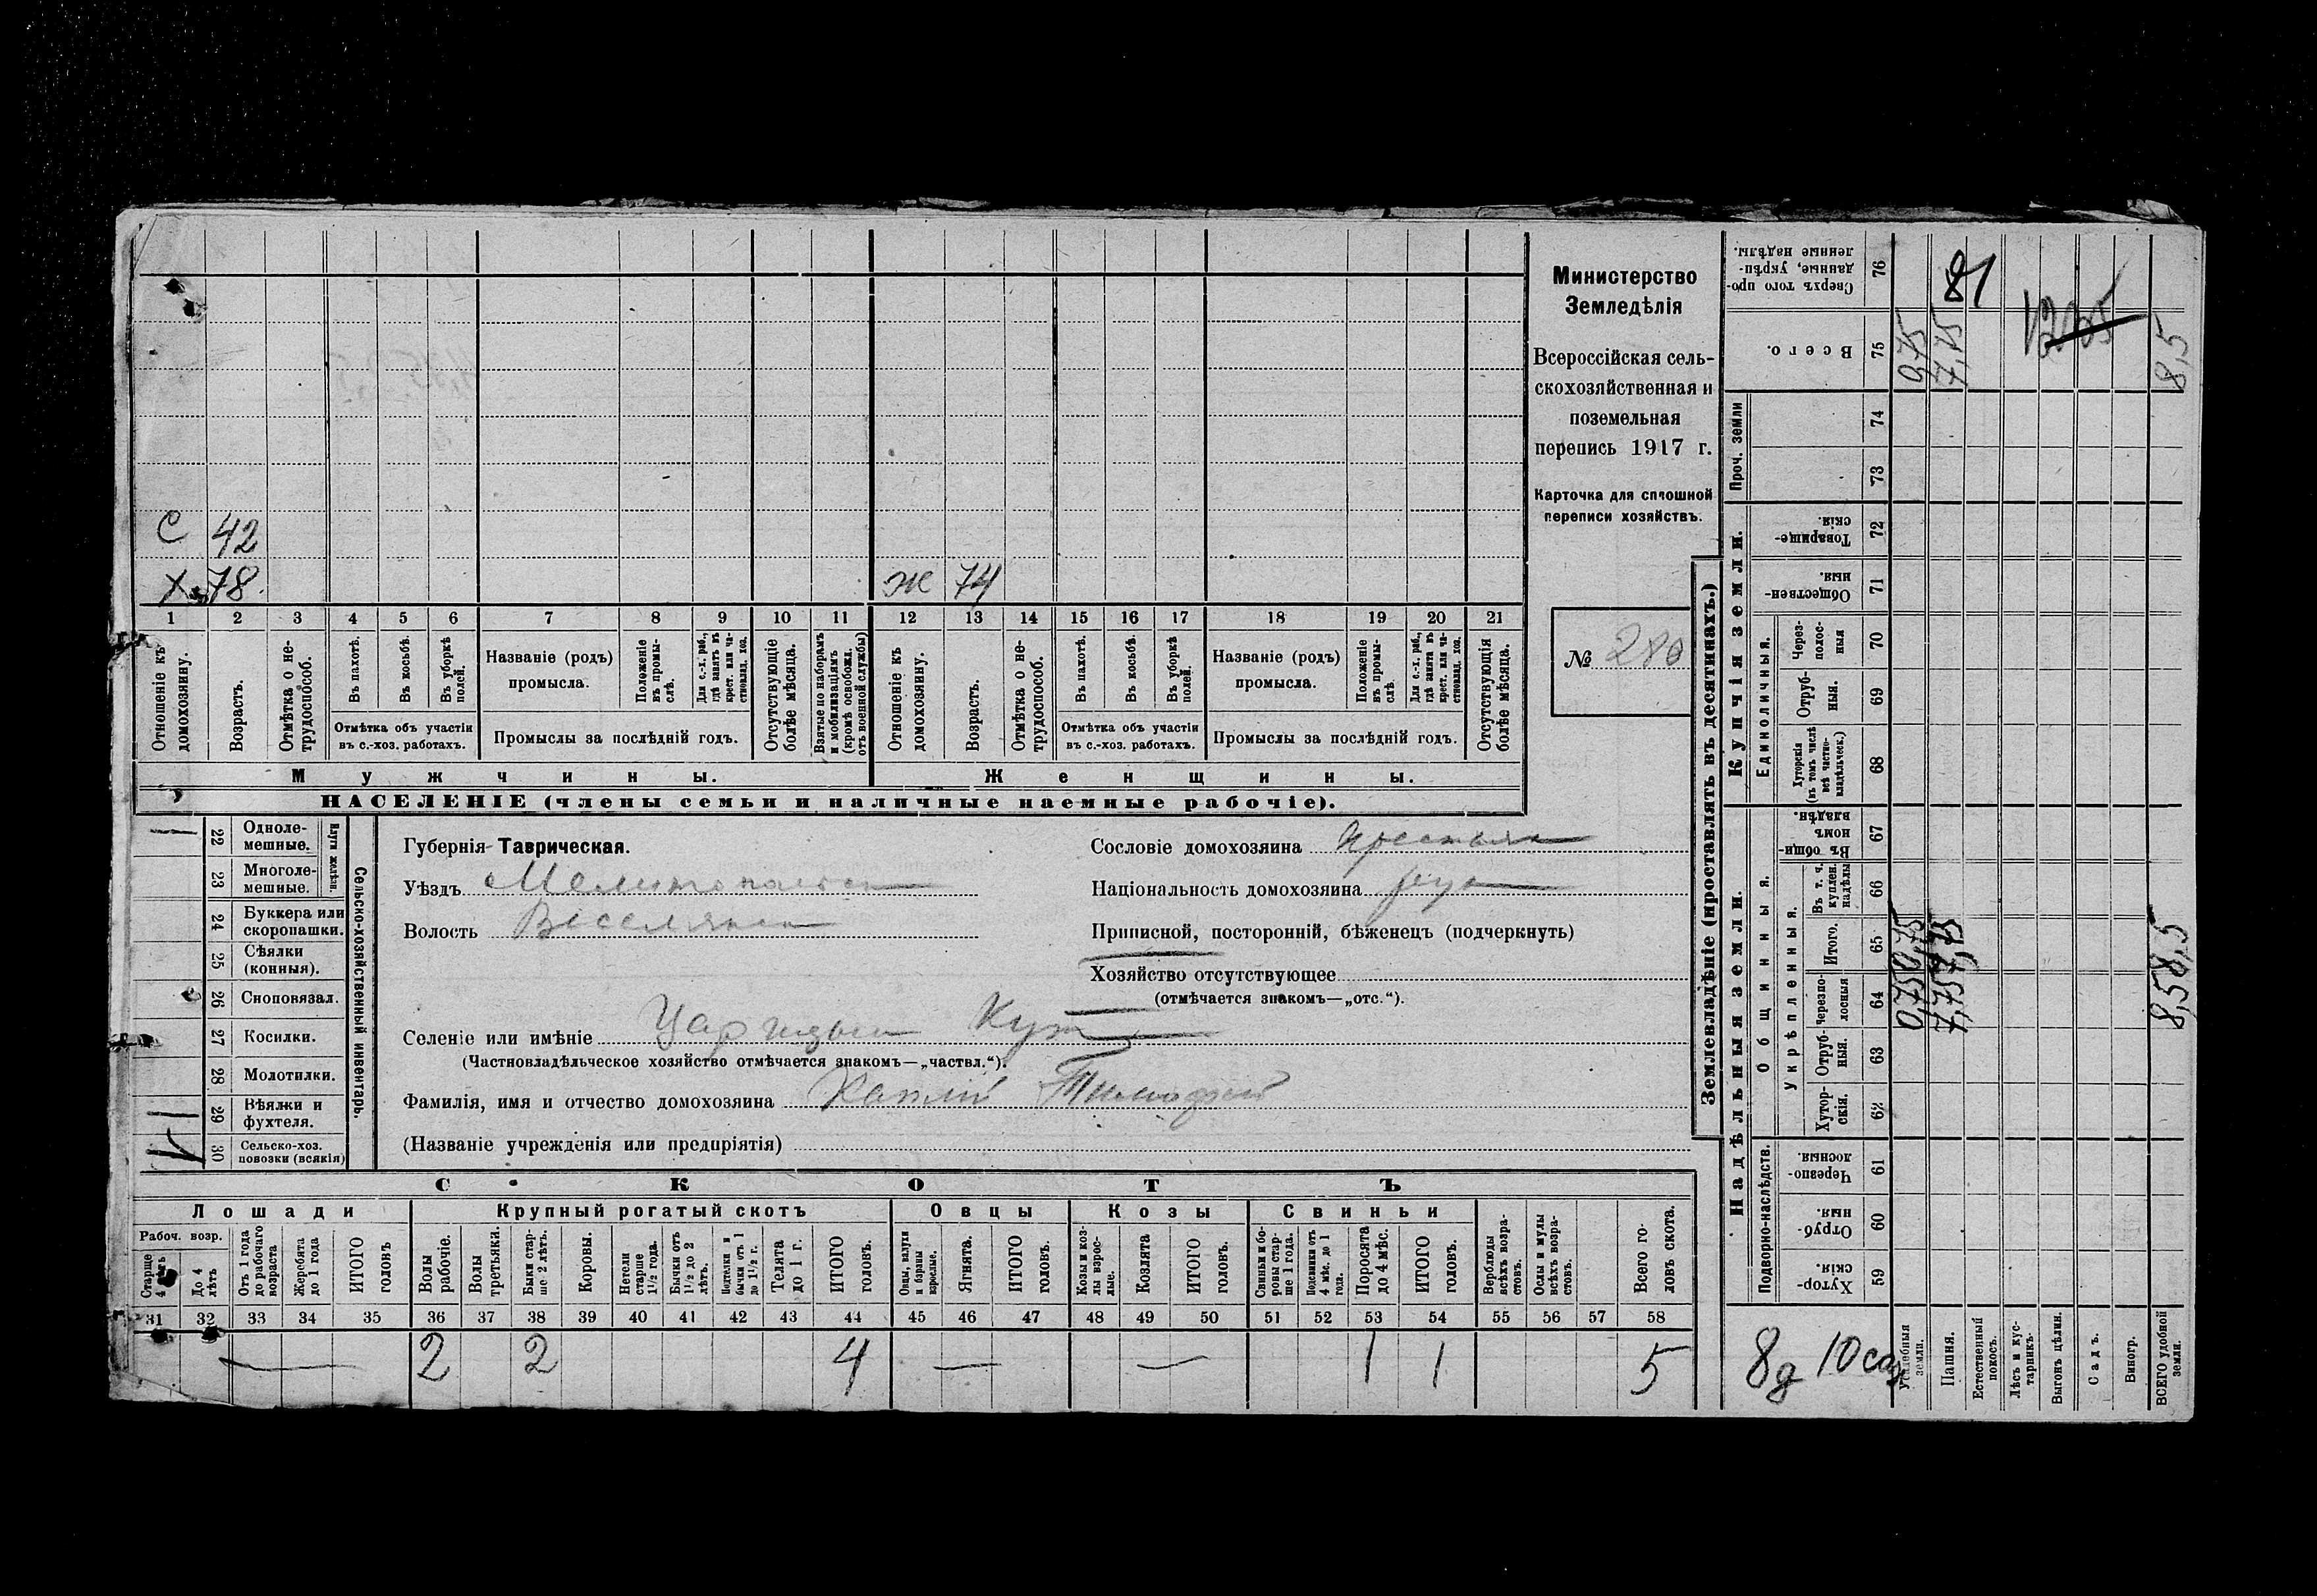 С 42
Х. 78. ж 74
1 2 3 4 5 6 7 8 9 10 11 12 13 14 15 16 17 18 19 20 21
Отношеніе къ домохозяину.
Возрастъ.
Отмѣтка о нетрудоспособ.
Въ пахотѣ.
Въ косьбѣ.
Въ уборкѣ полей.
Отмѣтка объ участіи
въ с.-хоз. работахъ.
Названіе (родъ)
промысла.
Положеніе въ промыслѣ.
Для с.-х. раб., гдѣ занятъ въ крест. или частновлад. хоз.
Промыслы за послѣдній годъ.
Отсутствующіе болѣе мѣсяца.
Взятые по наборамъ и мобилизаціямъ (кромѣ освобожд. отъ военной службы)
Отношеніе къ домохозяину.
Возрастъ.
Отмѣтка о нетрудоспособ.
Въ пахотѣ.
Въ косьбѣ.
Въ уборкѣ полей.
Отмѣтка объ участіи
въ с.-хоз. работахъ.
Названіе (родъ)
промысла.
Положеніе въ промыслѣ.
Для с.-х. раб., гдѣ занята въ крест. или частновлад. хоз.
Промыслы за послѣдній годъ.
Отсутствующія болѣе мѣсяца.
Мужчины. Женщины.
НАСЕЛЕНІЕ (члены семьи и наличные наемные рабочіе).
Министерство
Земледѣлія
Всероссійская сель-
скохозяйственная и
поземельная
перепись 1917 г.
Карточка для сплошной
переписи хозяйствъ.
№ 280
Сельско-хозяйственный инвентарь.
Плуги желѣзн.
22 Одноле-
мешные.
23 Многоле-
мешные.
24 Буккера или
скоропашки.
25 Сѣялки
(конныя).
26 Сноповязал.
27 Косилки.
28 Молотилки.
1 29 Вѣялки и
фухтеля.
1 30 Сельско-хоз.
повозки (всякія)
Губернія Таврическая.
Уѣздъ Мелитопольск
Волость Веселянск
Сословіе домохозяина Крестьян
Національность домохозяина рус
Приписной, посторонній, бѣженецъ (подчеркнуть)
Хозяйство отсутствующее
(отмѣчается знакомъ—„отс.“).
Селеніе или имѣніе Царицын Кут
(Частновладѣльческое хозяйство отмѣчается знакомъ—„частвл.“).
Фамилія, имя и отчество домохозяина Тимофей
(Названіе учрежденія или предпріятія)
СКОТЪ
Лошади Крупный рогатый скотъ Овцы Козы Свиньи
Рабоч. возр.
Старше 4 лѣтъ
До 4 лѣтъ
Отъ 1 года до рабочаго возраста
Жеребята до 1 года
ИТОГО головъ
Волы рабочіе.
Волы третьяки.
Быки старше 2 лѣтъ.
Коровы.
Нетели старше 1½ года.
Бычки отъ 1½ до 2 лѣтъ.
Подтелки и бычки отъ 1 до 1½ г.
Телята до 1 г.
ИТОГО головъ.
Овцы, валухи и бараны взрослые.
Ягнята.
ИТОГО головъ.
Козы и козлы взрослые.
Козлята
ИТОГО головъ.
Свиньи и боровы старше 1 года.
Подсвинки отъ 4 мѣс. до 1 года.
Поросята до 4 мѣс.
ИТОГО головъ.
Верблюды всѣхъ возрастовъ.
Ослы и мулы всѣхъ возрастовъ.
Всего головъ скота.
31 32 33 34 35 36 37 38 39 40 41 42 43 44 45 46 47 48 49 50 51 52 53 54 55 56 57 58
2 2 4 1 1 5
Землевладѣніе (проставлять въ десятинахъ.)
Надѣльныя земли. Купчія земли.
Подворно-наслѣдств.
Общинныя.
Укрѣпленныя.
Единоличныя.
Проч. земли
59 Хуторскія.
60 Отрубныя.
61 Черезполосныя.
62 Хуторскія.
63 Отрубныя.
64 Черезполосныя
65 Итого.
66 Въ т. ч. куплен. надѣлы
67 Въ общинномъ владѣн.
68 Хуторскія (въ томъ числѣ всѣ частновладѣльческ.)
69 Отрубныя.
70 Черезполосныя
71 Общественныя.
72 Товарищескія.
73
74
75 Всего.
76 Сверхъ того проданные, укрѣпленные надѣлы.
Усадебныя земли. 0,75 0,75 0,75
Пашня. 7,75 7,75 7,75
Естественный покосъ.
Лѣсъ и кустарникъ.
Выгонъ цѣлин.
Садъ.
Виногр.
ВСЕГО удобной земли. 8,5 8,5 8,5
81
8д 10 саж